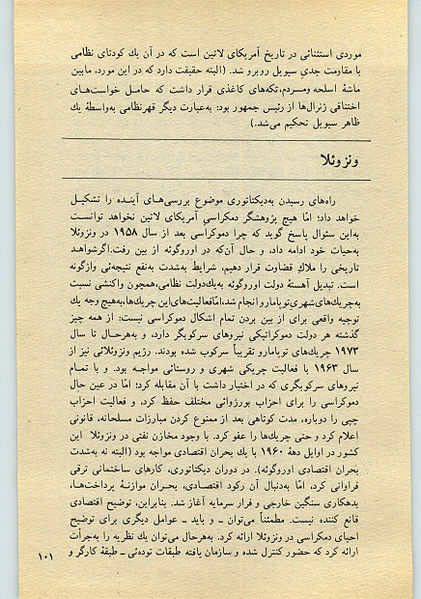 موردی استثنائی در تاریخ آمریکای لاتین است که در آن یك کودتای نظامی
با مقاومت جدیِ سیویل روبرو شد. (البته حقیقت دارد که در این مورد، مابین
ماشهٔ اسلحه ومــردم، تکه‌های کاغذی قرار داشت که حامــل خواست‌هــای
اختناقی ژنرال‌ها از رئیس جمهور بود: به‌عبارت دیگر قهرنظامی به‌واسطهٔ یك
ظاهر سیویل تحکیم می‌شد.)
ونزوئلا
راه‌های رسیدن به‌دیکتاتوری موضوع بررسی‌های آینـده را تشکیـل
خواهد داد؛ امّا هیچ پژوهشگر دمکراسیِ آمریکای لاتین نخواهد توانست
به‌این سئوال پاسخ گوید که چرا دموکراسی بعد از سال ۱۹۵۸ در ونزوئلا
به‌حیات خود ادامه داد، و حال آن‌که در اوروگوئه از بین رفت.اگرشواهـد
تاریخی را ملاكِ قضاوت قرار دهیم، شرایط به‌شدت به‌نفع نتیجه‌ئی واژگونه
است. تبدیل آهستهٔ دولت اوروگوئه به‌یك‌دولت نظامی،همچون واکنشی نسبت
به‌چریك‌های‌شهری‌توپامارو انجام شد،امّافعالیت‌های‌این چریك‌ها،به‌هیچ وجه یك
توجیه واقعی برای از بین بردن تمام اشکال دموکراسی نیست: از همه چیز
گذشته هر دولت دموکراتیکی نیروهای سرکوبگر دارد، و به‌هرحـال تا سال
۱۹۷۳ چریك‌های توپامارو تقریباً سرکوب شده بودند. رژیم ونزوئلائی نیز از
سال ۱۹۶۳ با فعالیت چریکی شهری و روستائی مواجـه بود. و با تمـام
نیروهای سرکوبگری که در اختیار داشت با آن مقابله کرد؛ امّا در عین حال
دموکراسی را برای احزاب بورژوائی مختلف حفظ کرد، و فعالیت احزاب
چپی را دوباره، مدت کوتاهی بعد از ممنوع کردن مبارزات مسلحانه، قانونی
اعلام کرد و حتی چریك‌ها را عفو کرد. با وجود مخازن نفتی در ونزوئلا این
کشور در اوایل دههٔ ۱۹۶۰ با یك بحران اقتصادی مواجه بود (البته نه به‌شدت
بحران اقتصادی اوروگوئه). در دوران دیکتاتوری، کارهای ساختمانی ترقی
فراوانی کرد، امّا به‌دنبال آن رکود اقتصـادی، بحـران موازنـهٔ پرداخت‌هـا،
بدهکاری سنگین خارجی و فرار سرمایه آغاز شد. بنابراین، توضیح اقتصادی
قانع کننده نیست. مطمئناً می‌توان ــ و باید ــ عوامل دیگری برای توضیح
احیای دمکراسی در ونزوئلا ارائه کرد. به‌هرحال می‌توان یك نظریه را به‌جرأت
ارائه کرد که حضور کنترل شده و سازمان یافته طبقات توده‌ئی ــ طبقهٔ کارگر و
۱۰۱